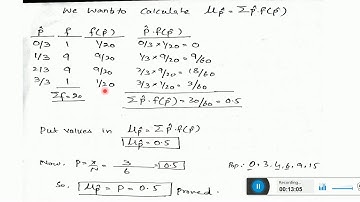 We want to Calculate μp̂ = Σp̂.f(p̂)
p̂ f f(p̂) p̂.f(p̂)
0/3 1 1/20 0/3 × 1/20 = 0
1/3 9 9/20 1/3 × 9/20 = 9/60
2/3 9 9/20 2/3 × 9/20 = 18/60
3/3 1 1/20 3/3 × 1/20 = 3/60
Σf = 20 Σp̂.f(p̂) = 30/60 = 0.5
Put values in μp̂ = Σp̂.f(p̂)
μp̂ = 0.5
Now, P = x/N = 3/6 = 0.5
Pop: 0, 3, 4, 6, 9, 15
So, μp̂ = P = 0.5 proved.
Recording...
00:13:05